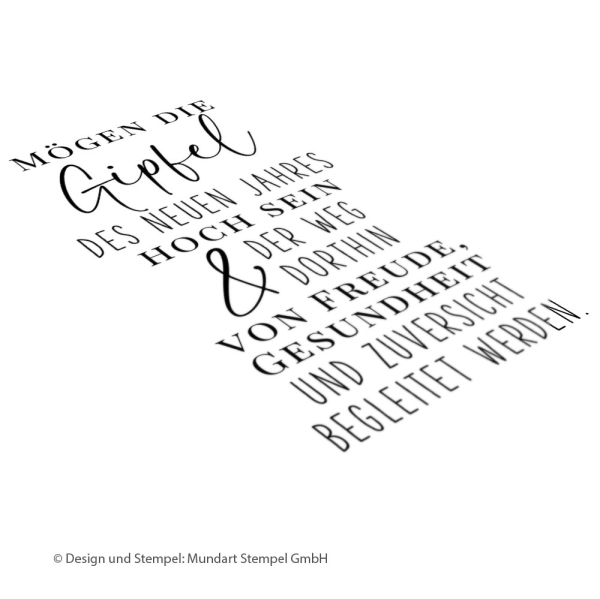 MÖGEN DIE
Gipfel
DES NEUEN JAHRES
HOCH SEIN
& DER WEG
DORTHIN
VON FREUDE,
GESUNDHEIT
UND ZUVERSICHT
BEGLEITET WERDEN.
© Design und Stempel: Mundart Stempel GmbH